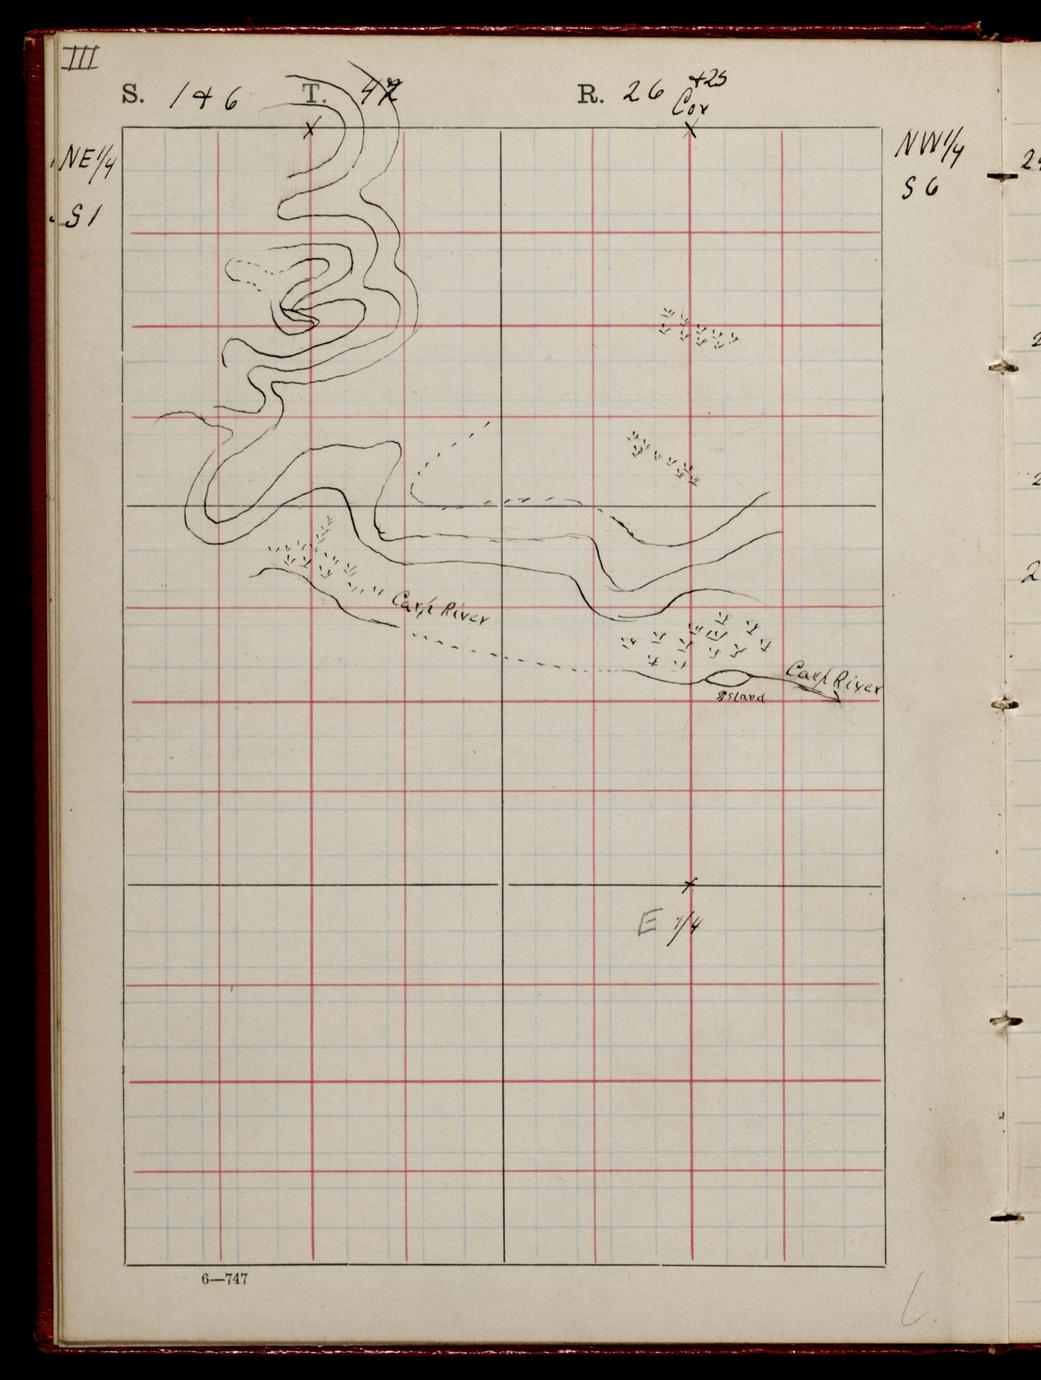 III
S. 1 + 6 T. 47 R. 26 + 25
Cox
NE 1/4
S 1
NW 1/4
S 6
Carp River
Carp River
Island
E 1/4
6—747